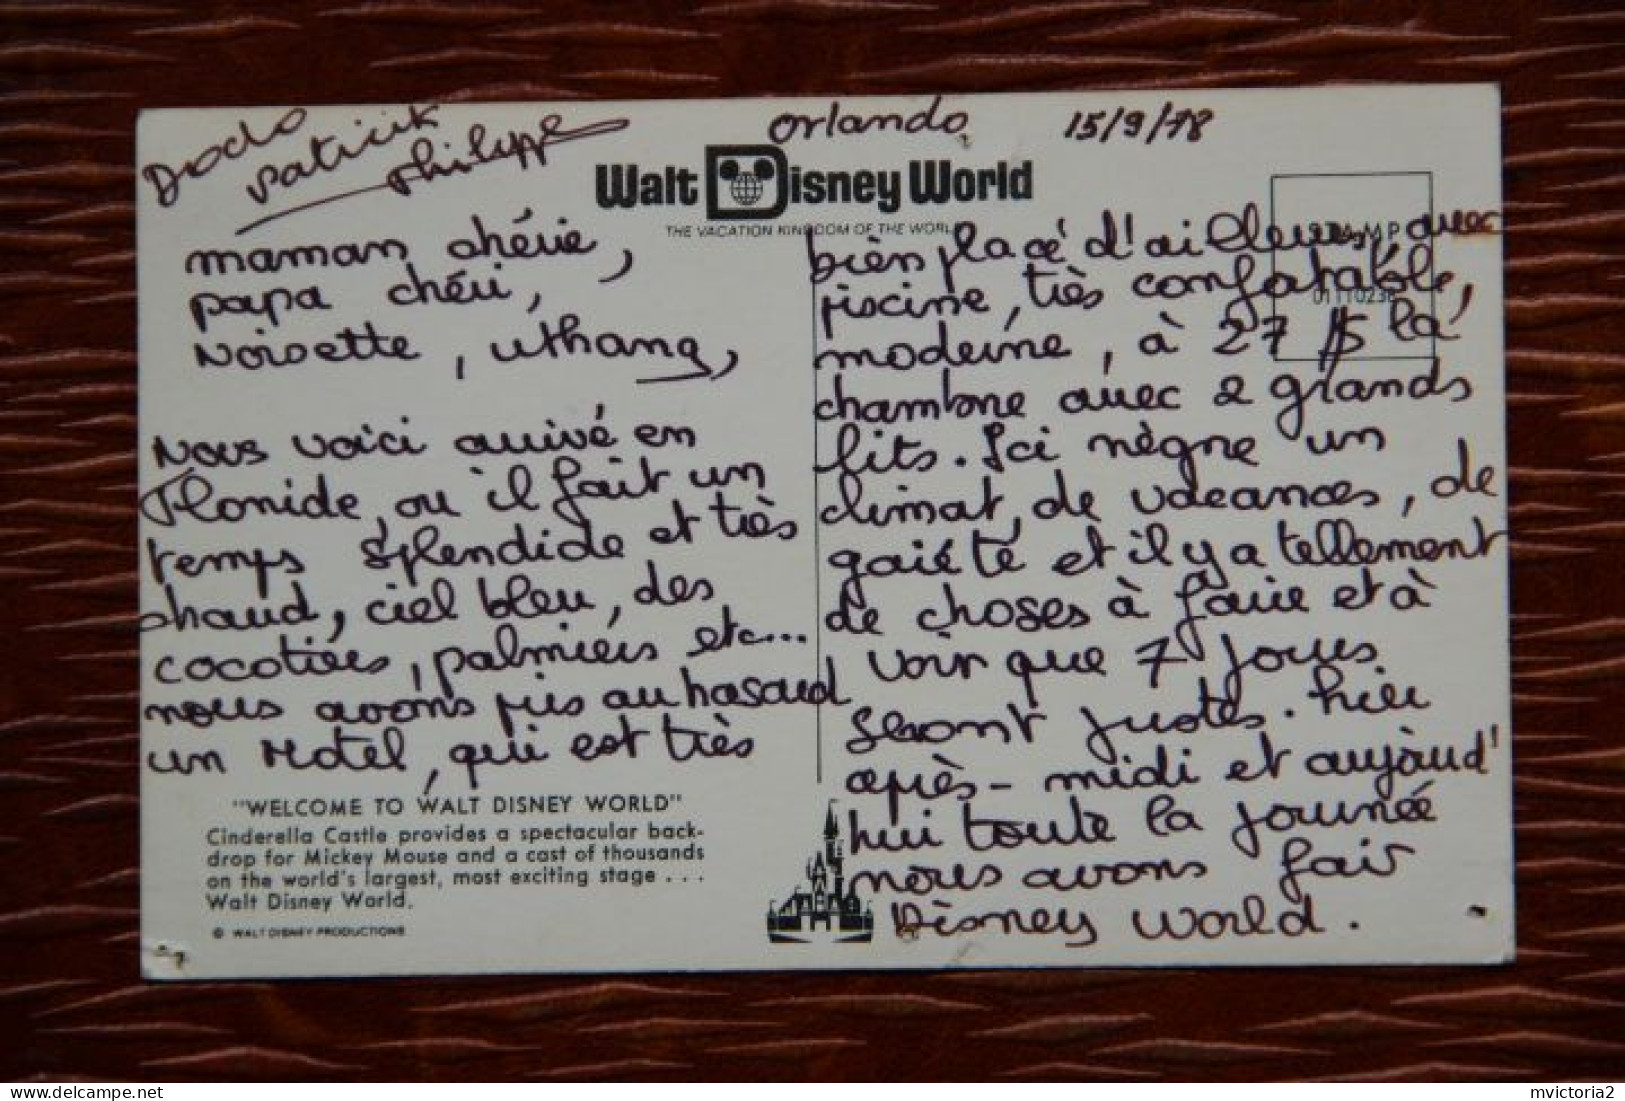 Dodo
Patrick
Philippe
Orlando 15/9/78
Walt Disney World
THE VACATION KINGDOM OF THE WORLD
maman chérie,
papa chéri,
Noisette, uthang,
Nous voici arrivé en
Floride, ou il fait un
temps splendide et très
chaud, ciel bleu, des
cocotiers, palmiers etc...
nous avons pris au hasard
un Motel, qui est très
bien placé d'ailleurs, avec
piscine, très confortable,
moderne, à 27 $ la
chambre avec 2 grands
lits. Ici règne un
climat, de vacances, de
gaiété et il y a tellement
de choses à faire et à
voir que 7 jours
seront justes. hier
après-midi et aujourd'
hui toute la journée
nous avons fair
Disney World.
STAMP
01110236
"WELCOME TO WALT DISNEY WORLD"
Cinderella Castle provides a spectacular back-
drop for Mickey Mouse and a cast of thousands
on the world's largest, most exciting stage . . .
Walt Disney World.
© WALT DISNEY PRODUCTIONS
delcampe.net
mvictoria2